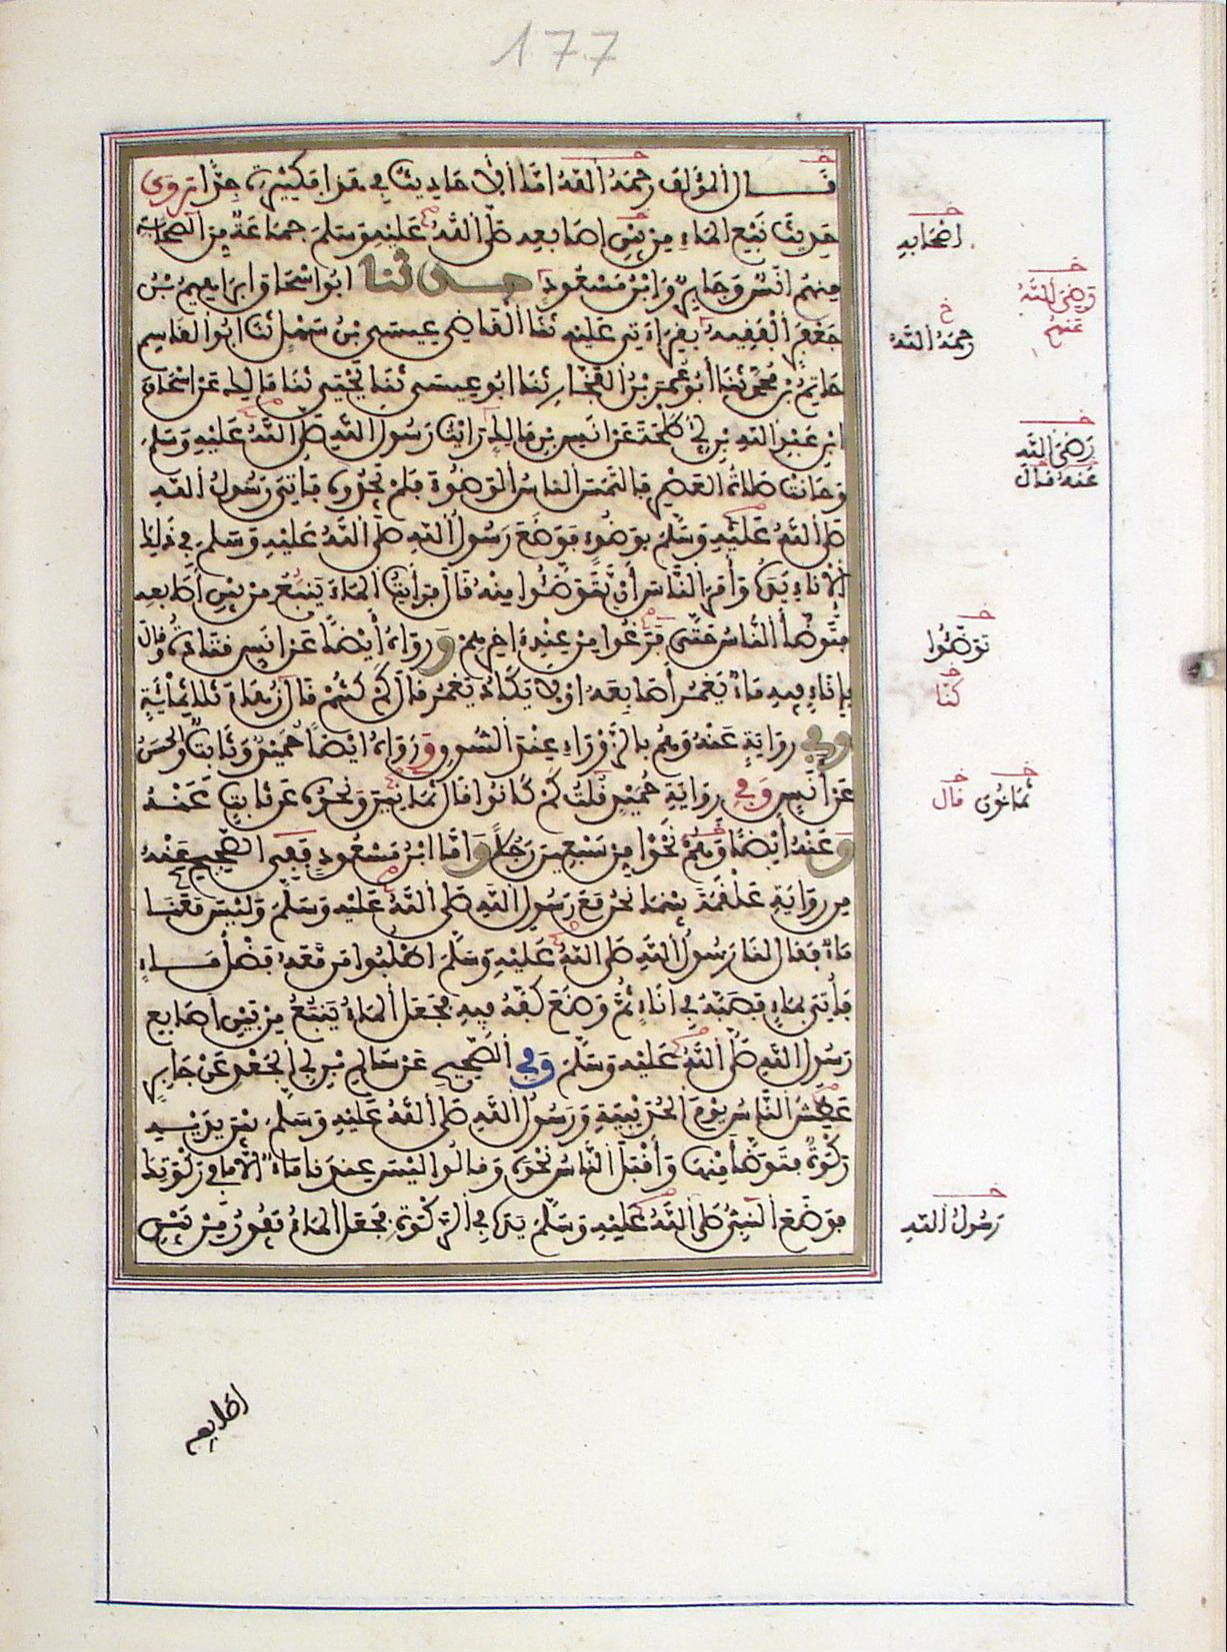 177
قَالَ المؤلف رحمه الله امَّا الاحاديث في هذا فكثيرة جدّا روى
حديث نبع الماء من بين اصابعه صلى الله عليه وسلم جماعة من الصحابة
منهم انس وجابر وابن مسعود حدثنا ابو اسحاق ابراهيم بن
جعفر الفقيه بقراءتي عليه ثنا القاضي عيسى بن سهل ثنا ابو القاسم
حاتم بن محمد ثنا أبو عمر بن الفخار ثنا ابو عيسى ثنا يحيى ثنا مالك عن اسحاق
ابن عبد الله بن ابي طلحة عن انس بن مالك رايت رسول الله صلى الله عليه وسلم
وحانت صلاة العصر فالتمس الناس الوضوء فلم يجدوه فأتي رسول الله
صلى الله عليه وسلم بوضوء فوضع رسول الله صلى الله عليه وسلم في ذلك
الاناء يده وأمر الناس أن يتوضئوا منه قال فرأيت الماء ينبع من بين أصابعه
فتوضأ الناس حتى فرغوا من عند اخرهم ورواه أيضا عن انس قتادة وقال
بإناء فيه ماء يغمر أصابعه او لا يكاد يغمر قال كم كنتم قال زهاء ثلاثمائة
وفي رواية عنه وهم بالزوراء عند السوق ورواه ايضا حميد وثابت والحسن
عن أنس وفي رواية حميد قلت كم كانوا قال ثمانين ونحوه عن ثابت عنه
وعنه أيضا وهم نحوا من سبعين رجلا واما ابن مسعود ففي الصحيح عنه
من رواية علقمة بينما نحن مع رسول الله صلى الله عليه وسلم وليس معنا
ماء فقال لنا رسول الله صلى الله عليه وسلم اطلبوا من معه فضل ماء
فأتي بماء فصبه في اناء ثم وضع كفه فيه فجعل الماء ينبع من بين اصابع
رسول الله صلى الله عليه وسلم وفي الصحيح عن سالم بن ابي الجعد عن جابر
عطش الناس يوم الحديبية ورسول الله صلى الله عليه وسلم بين يديه
ركوة فتوضأ منها وأقبل الناس نحوه وقالوا ليس عندنا ماء الا ما في ركوتك
فوضع النبي صلى الله عليه وسلم يده في الركوة فجعل الماء يفور من بين
اصحابه
رضي الله
عنهم
رحمه الله
رضي الله
عنه قال
توضئوا
كنا
ثمانون قال
رسول الله
اصابعه